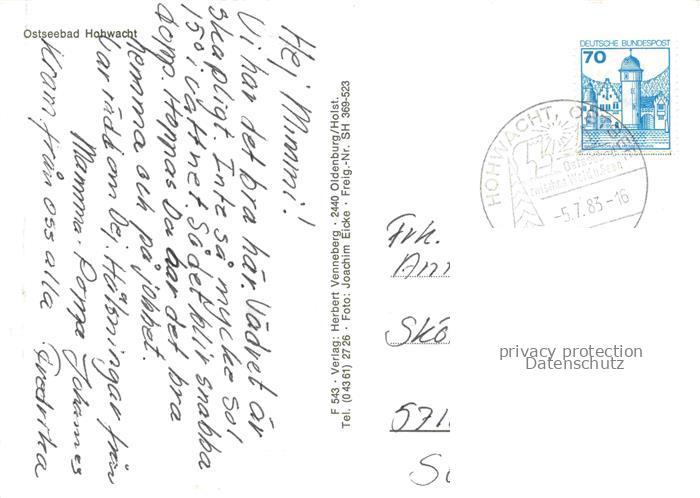 Ostseebad Hohwacht
Hej Mimmi!
Vi har det bra här. Vädret är
skapligt. Inte så mycke sol
15° i vattnet. Så det blir snabba
dopp. Hoppas Du har det bra
hemma och på jobbet.
Var rädd om Dej. Hälsningar från
Mamma · Pappa Johannes
Kram från oss alla Fredrika
F 543 · Verlag: Herbert Venneberg · 2440 Oldenburg/Holst.
Tel. (0 43 61) 27 26 · Foto: Joachim Eicke · Freig.-Nr. SH 369-523
DEUTSCHE BUNDESPOST
70
HOHWACHT,
-5.7.83-16
Frk.
Ann
Skö
571
privacy protection
Datenschutz